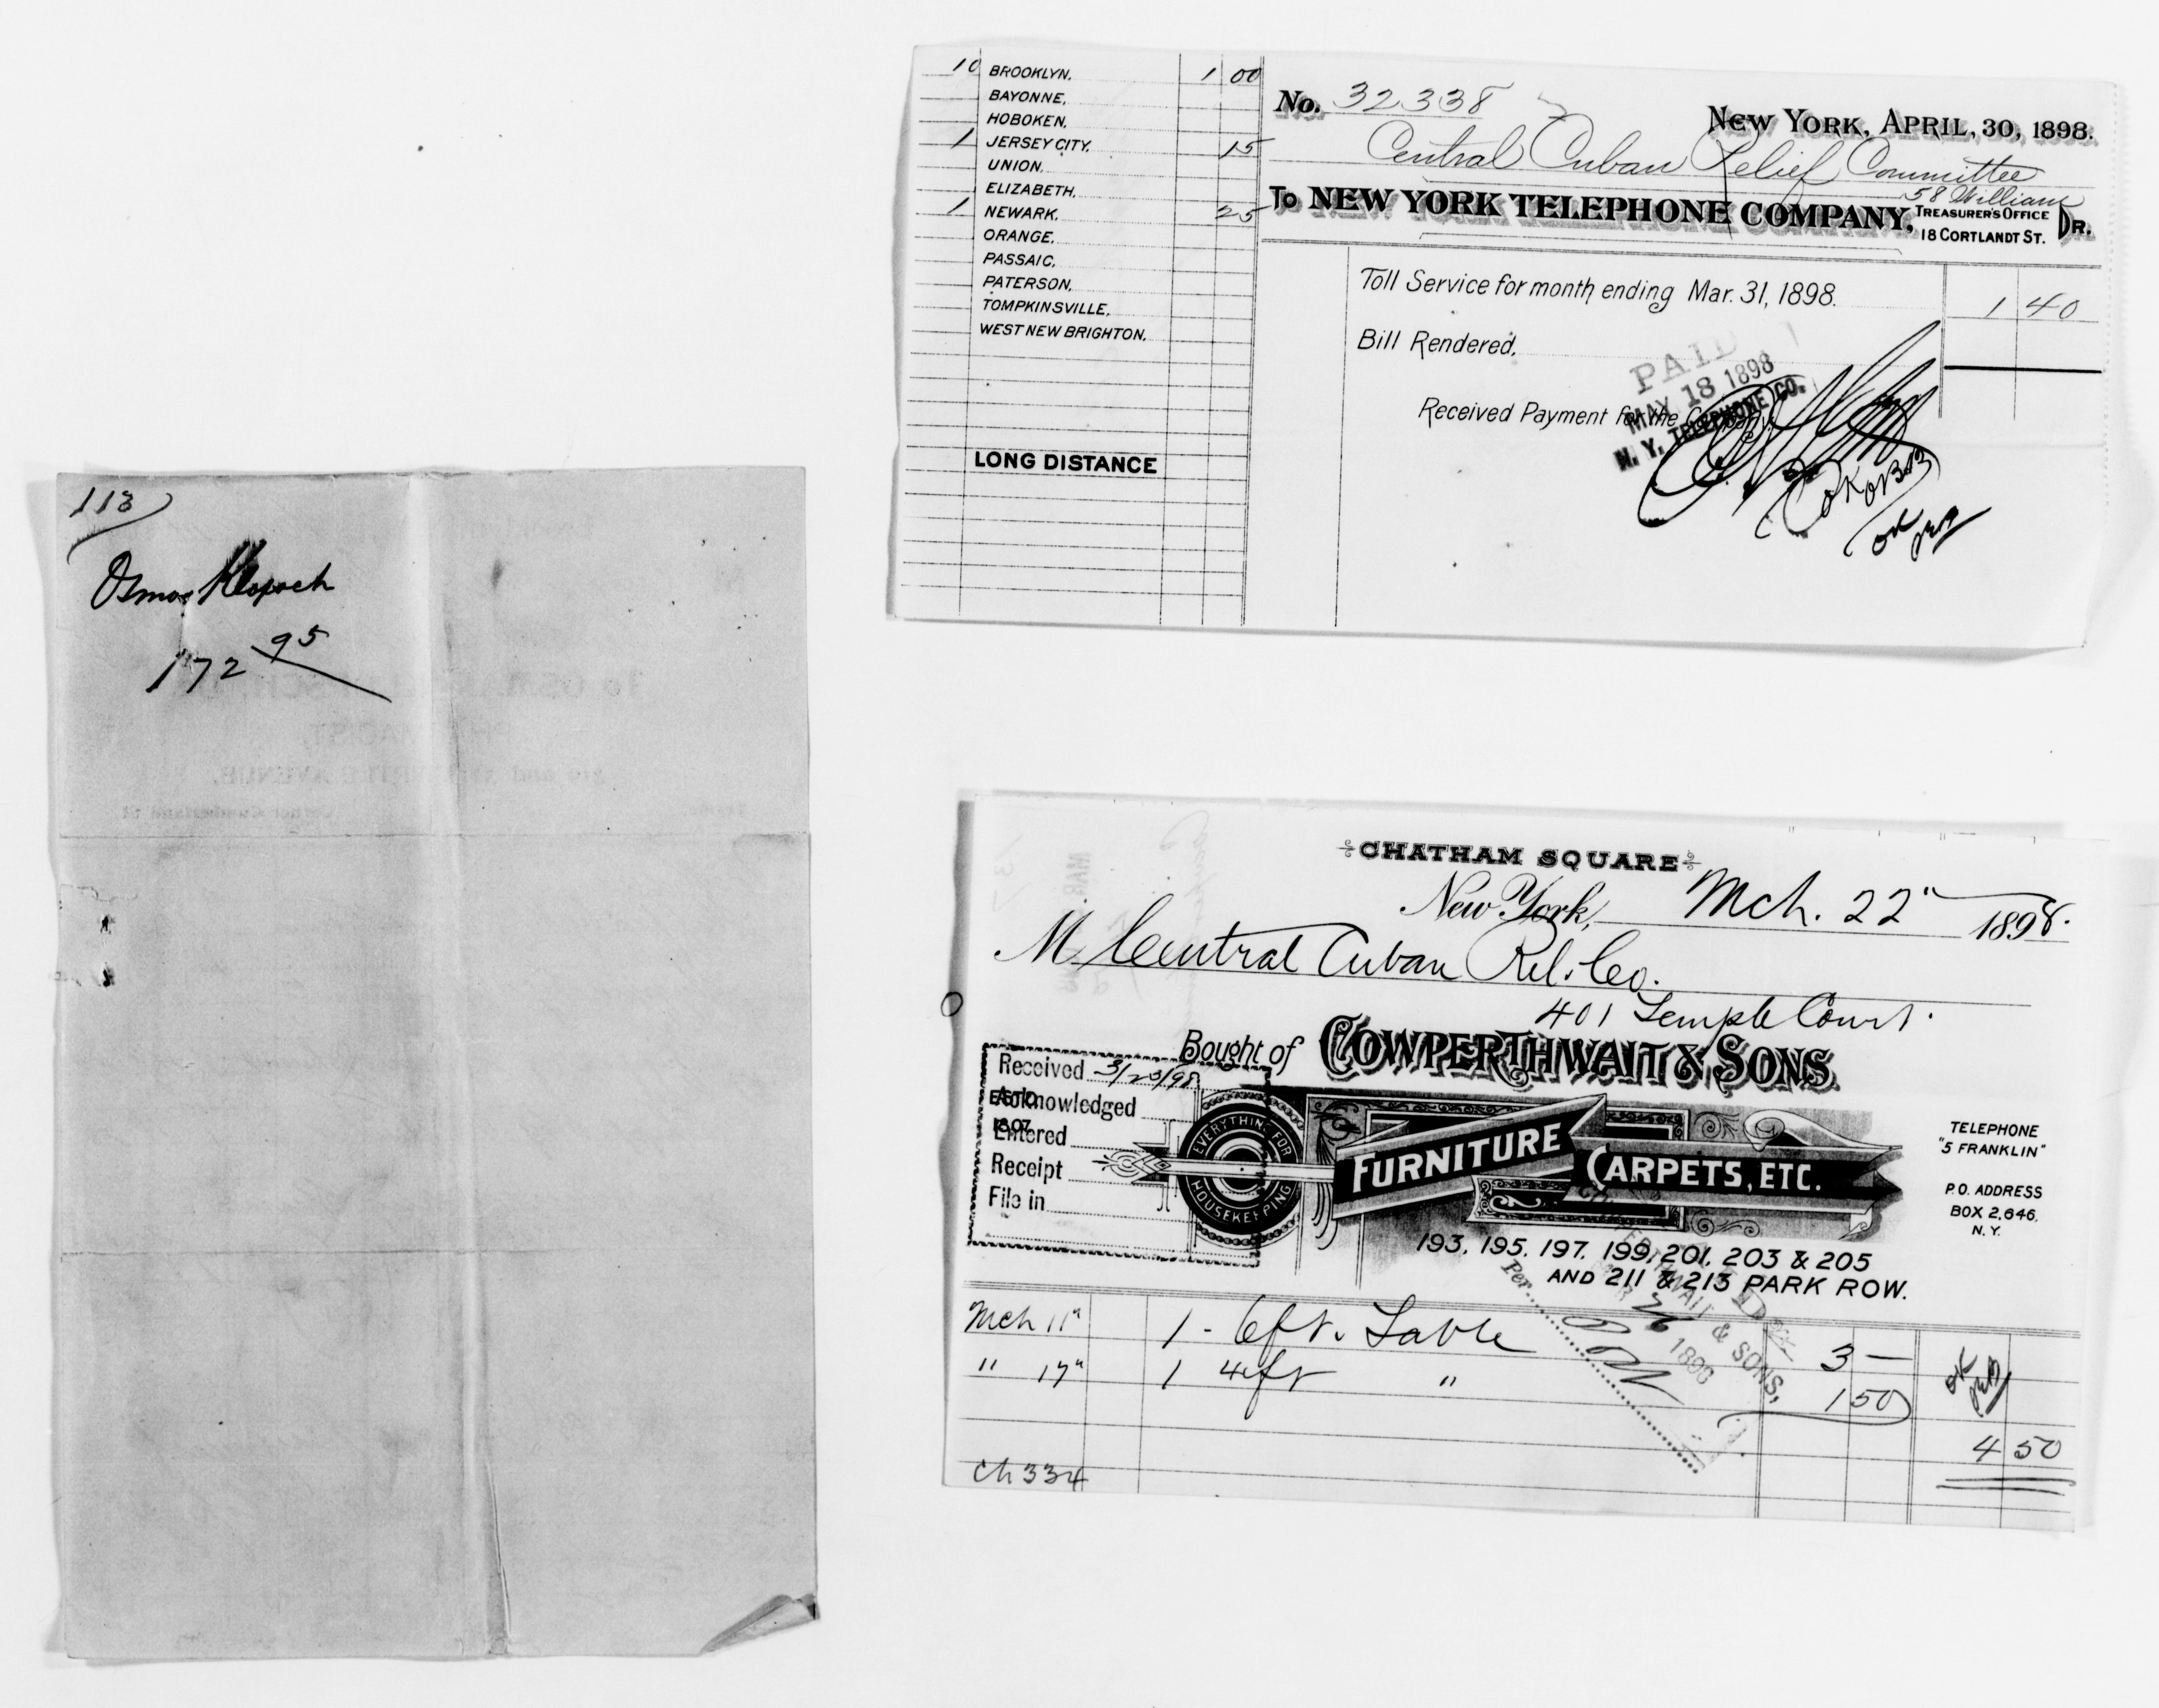 113
Osmar Klopsch
172 95
10 BROOKLYN. 1 00
BAYONNE.
HOBOKEN.
1 JERSEY CITY. 15
UNION.
ELIZABETH.
1 NEWARK. 25
ORANGE.
PASSAIC.
PATERSON.
TOMPKINSVILLE.
WEST NEW BRIGHTON.
LONG DISTANCE
No. 32338
NEW YORK, APRIL, 30, 1898.
Central Cuban Relief Committee
58 William
To NEW YORK TELEPHONE COMPANY, TREASURER'S OFFICE 18 CORTLANDT ST. DR.
Toll Service for month ending Mar. 31, 1898. 1 40
Bill Rendered,
Received Payment for the Company.
PAID
MAY 18 1898
N. Y. TELEPHONE CO.
OK
OK
CHATHAM SQUARE
New York, Mch. 22" 1898.
M Central Cuban Rel. Co.
401 Temple Court.
Bought of COWPERTHWAIT & SONS.
Received 3/23/98
Acknowledged
Entered
Receipt
File in
ESTD.
1807.
EVERYTHING FOR HOUSEKEEPING
FURNITURE CARPETS, ETC.
TELEPHONE
"5 FRANKLIN"
P.O. ADDRESS
BOX 2,646.
N.Y.
193, 195, 197, 199, 201, 203 & 205
AND 211 & 213 PARK ROW.
COWPERTHWAIT & SONS,
Per
Mch 11" 1 - 6 ft. Table 3 —
" 17" 1 4 ft " 1 50
OK
4 50
Ch 334